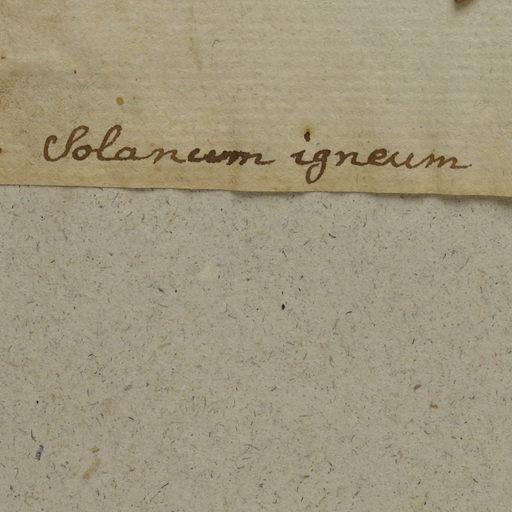 Solanum igneum